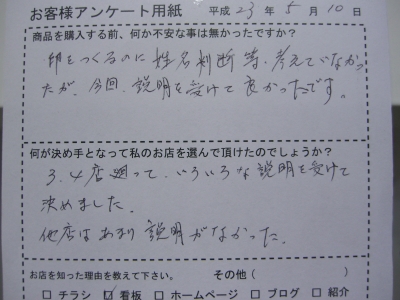 お客様アンケート用紙 平成 23 年 5 月 10 日
商品を購入する前、何か不安な事は無かったですか？
印をつくるのに姓名判断等、考えていなかっ
たが、今回、説明を受けて良かったです。
何が決め手となって私のお店を選んで頂けたのでしょうか？
3、4店廻って、いろいろな説明を受けて
決めました。
他店はあまり説明がなかった。
お店を知った理由を教えて下さい。 その他（ ）
□ チラシ ☑ 看板 □ ホームページ □ ブログ □ 紹介